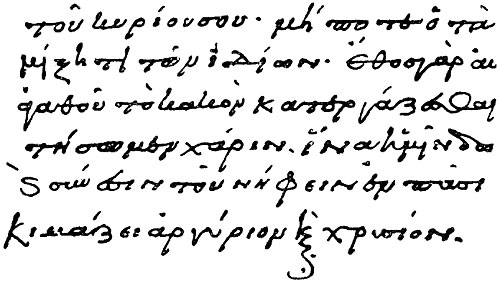 τοῦ κυρίου σου· μή ποτε ὁ τὰ
μίξη τι τῶν ἰδίων· ἔθος γὰρ αυ
ἀγαθοῦ τὸ κακὸν κατεργάζεσθαι
τήσωμεν χάριν. ἵνα ἡμῖν δω
τοῦ νήφειν ἐν πᾶσι
κιμάζει ἀργύριον κ χρυσίον.